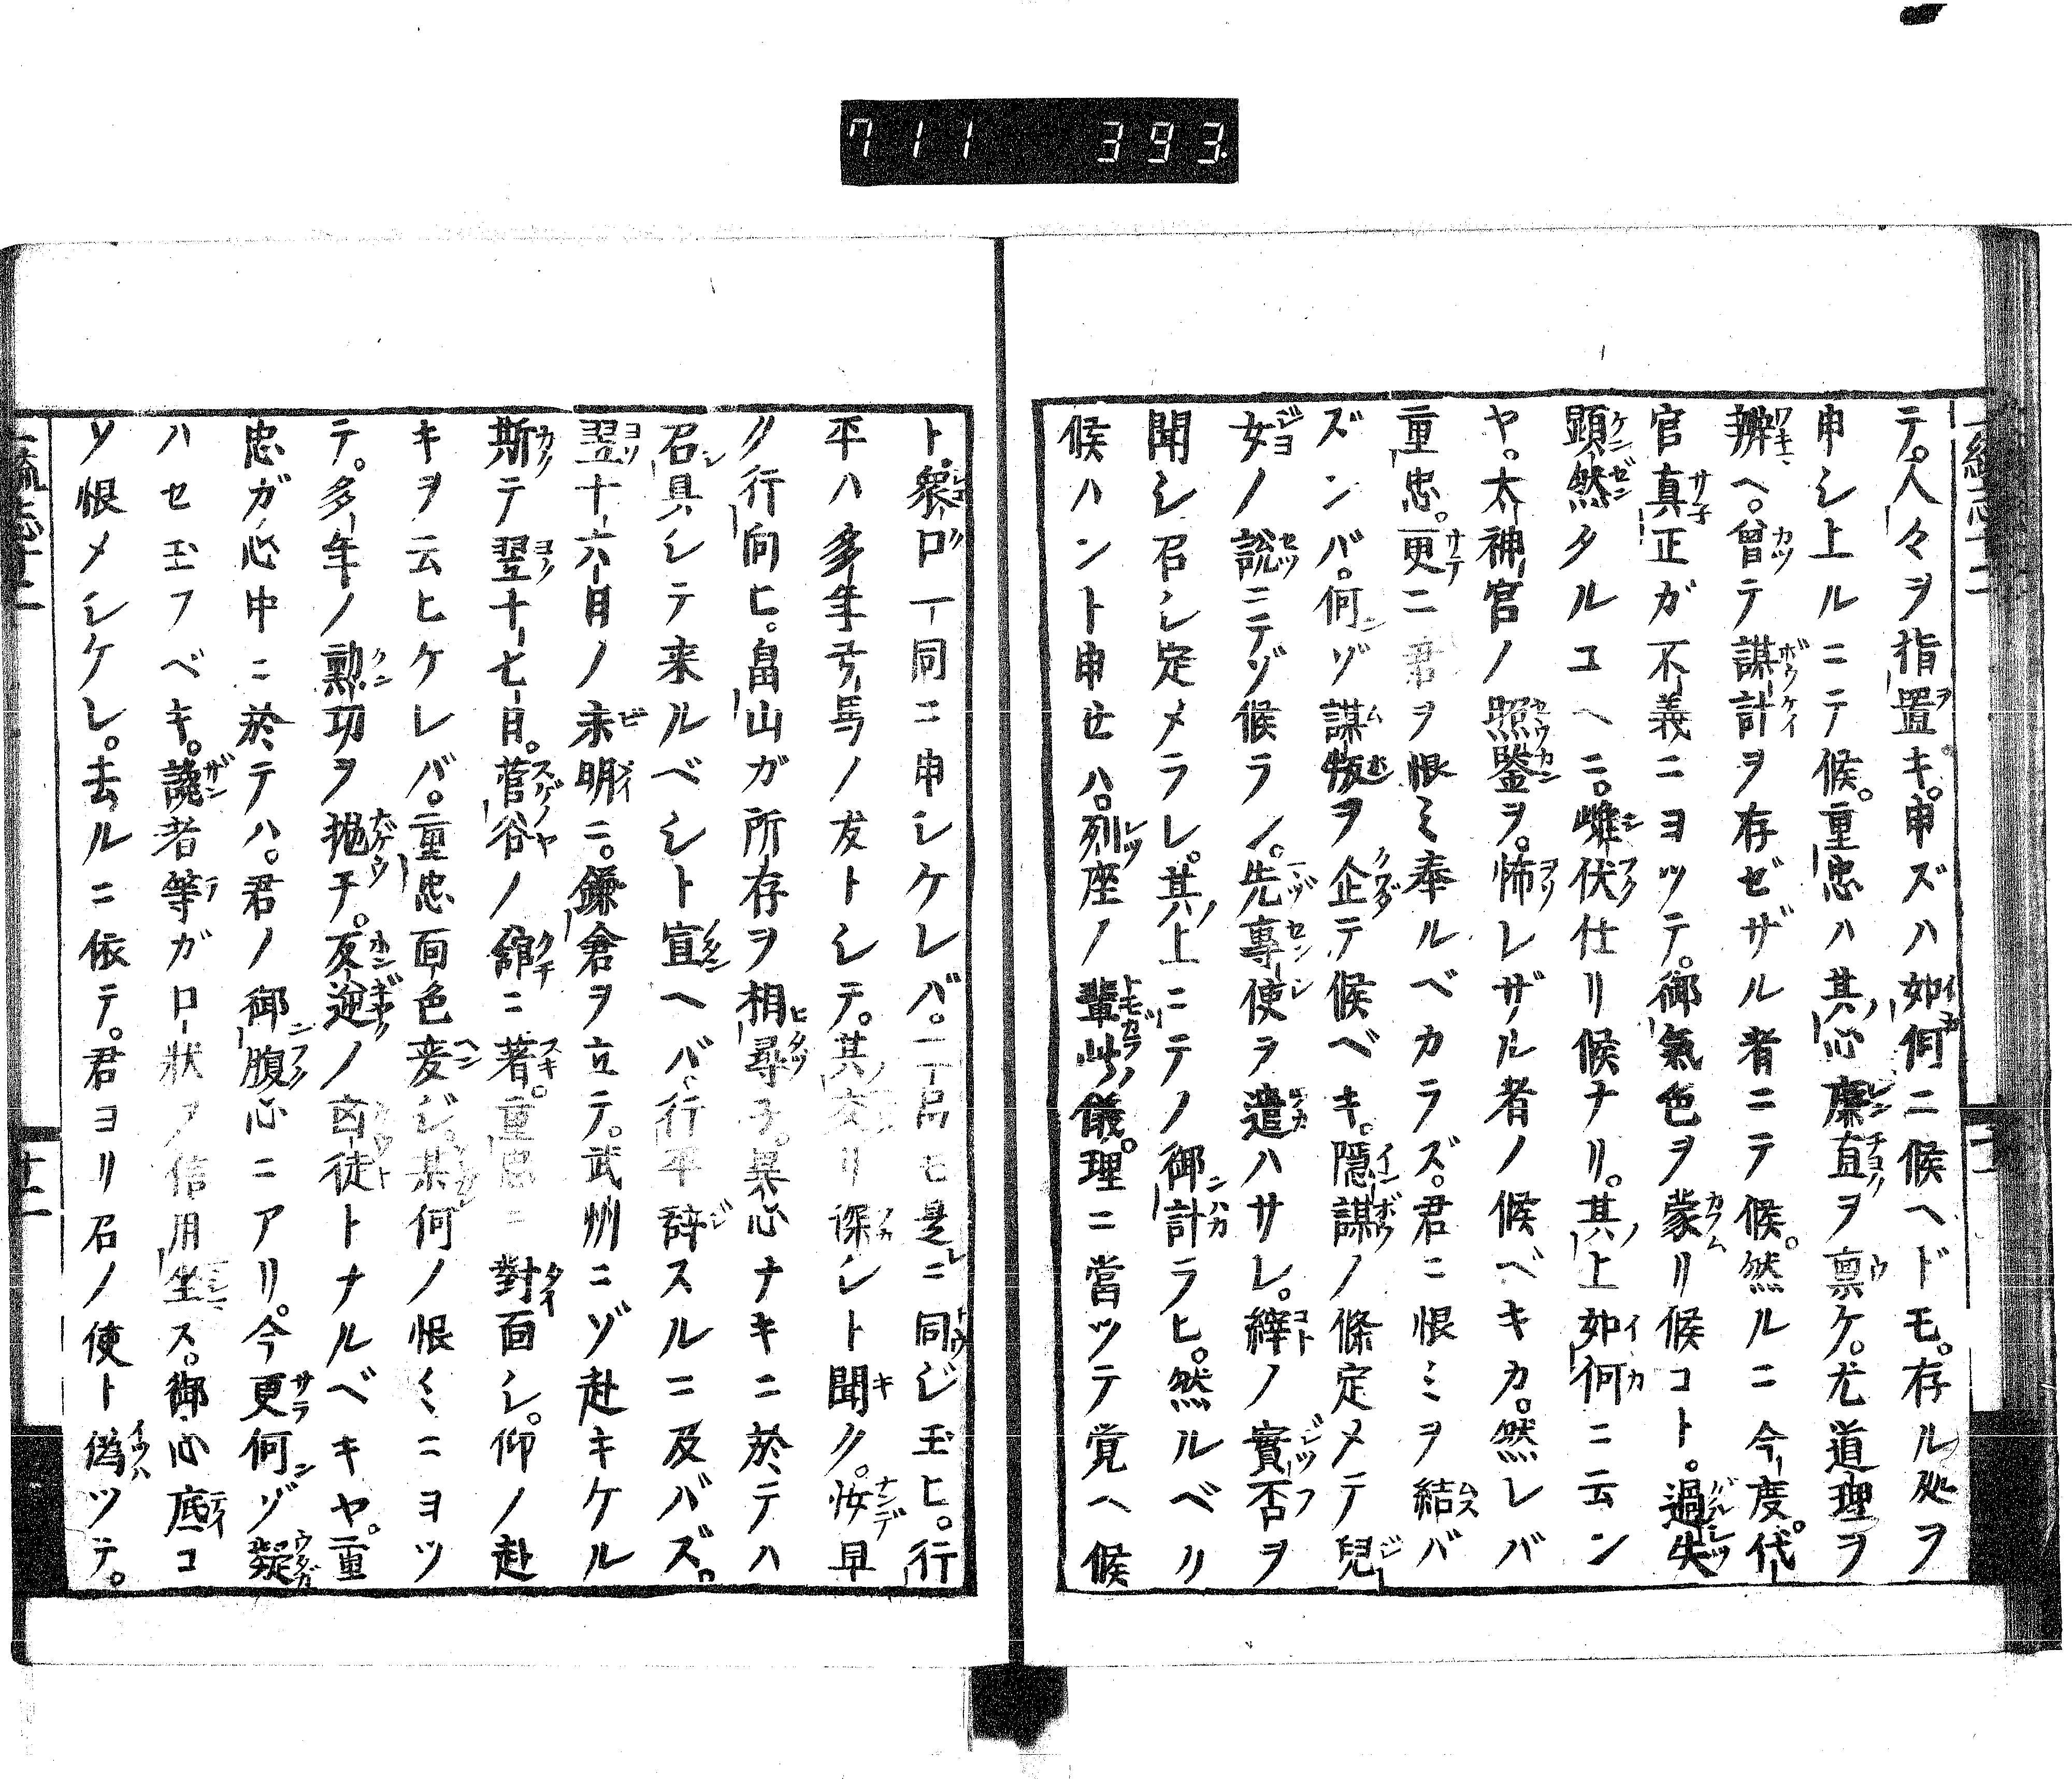 711 393.
テ。人々ヲ指置キ。申ズハ如何ニ候ヘドモ。存ル処ヲ
申シ上ルニテ候。重忠ハ其心廉直ヲ禀ケ。尤道理ヲ
辨ヘ。曾テ謀計ヲ存ゼザル者ニテ候。然ルニ今度。代
官真正ガ不義ニヨツテ。御氣色ヲ蒙リ候コト。過失
顕然タルユヘニ。雌伏仕リ候ナリ。其上如何ニ云ン
ヤ。太神宮ノ照鑒ヲ。怖レザル者ノ候ベキカ。然レバ
重忠。更ニ君ヲ恨ミ奉ルベカラズ。君ニ恨ミヲ結バ
ズンバ。何ゾ謀叛ヲ企テ候ベキ。隠謀ノ條定メテ兒
女ノ説ニテゾ候ラン。先專使ヲ遣ハサレ。縡ノ實否ヲ
聞シ召シ定メラレ。其上ニテノ御計ラヒ。然ルベク
候ハント申セハ。列座ノ輩此儀。理ニ當ツテ覚ヘ候
ト。衆口一同ニ申シケレバ。二品モ是ニ同ジ玉ヒ。行
平ハ多年弓馬ノ友トシテ。其交リ深シト聞ク。汝早
ク行向ヒ。畠山ガ所存ヲ相尋子。異心ナキニ於テハ
召具シテ来ルベシト宣ヘバ、行平辞スルニ及バズ。
翌十六日ノ未明ニ。鎌倉ヲ立テ。武州ニゾ赴キケル
斯テ翌十七日。菅谷ノ舘ニ著。重忠ニ對面シ。仰ノ赴
キヲ云ヒケレバ。重忠面色変ジ。某何ノ恨ミニヨツ
テ。多年ノ勲功ヲ抛チ。反逆ノ凶徒トナルベキヤ。重
忠ガ心中ニ於テハ。君ノ御腹心ニアリ。今更何ゾ疑
ハセ玉フベキ。讒者等ガ口状ヲ信用坐ス。御心底コ
ソ恨メシケレ。去ルニ依テ。君ヨリ召ノ使ト偽ツテ。